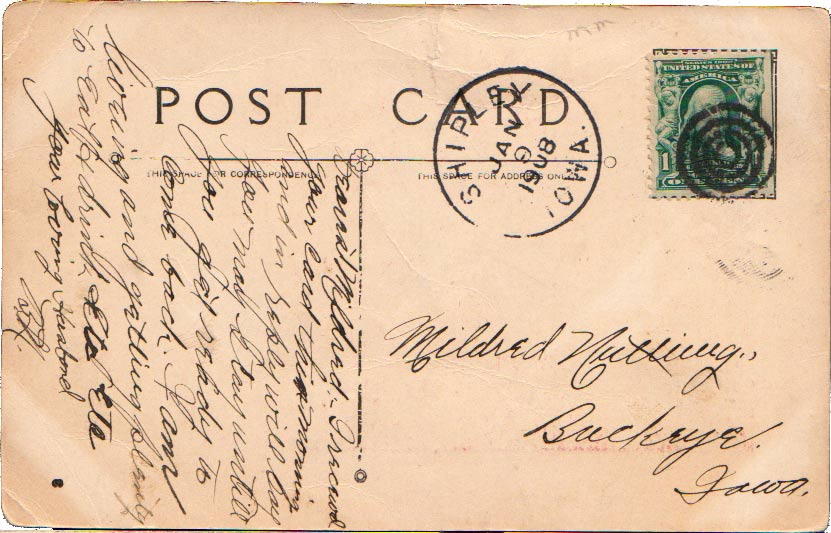 POST CARD
THIS SPACE FOR CORRESPONDENCE
THIS SPACE FOR ADDRESS ONLY
SHIPLEY
JAN
9
1908
IOWA.
SERIES 1902
UNITED STATES OF
AMERICA
1
Mildred Nutting.,
Buckeye.
Iowa.
Dear Mildred- I received
Your card this morning
and in reply will say
You may stay until
You get ready to
Come back. I am
living and getting plenty
to eat & drink Etc Etc
Your loving Husband